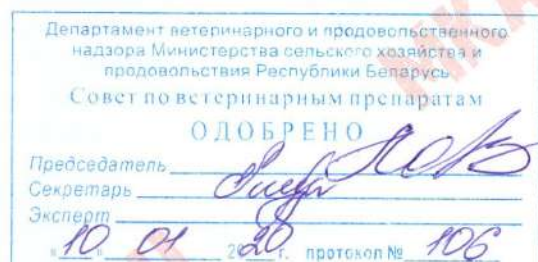 Департамент ветеринарного и продовольственного
надзора Министерства сельского хозяйства и
продовольствия Республики Беларусь
Совет по ветеринарным препаратам
ОДОБРЕНО
Председатель
Секретарь
Эксперт
"10" 01 2020 г. протокол № 106